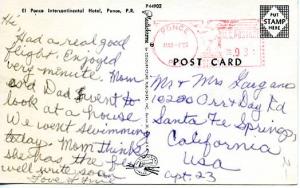 El Ponce Intercontinental Hotel, Ponce, P.R.
P44902
PONCE
PLACE
STAMP
HERE
POST CARD
Hi
Had a real good
flight. Enjoyed
very minute. Mom
and Dad went to
look at a house
We went swimming
today. Mom thinks
she has the
well write soon
Love
Mr & Mrs Gargano
10200 Orr & Day Rd
Santa Fe Springs
California
USA
apt. 23